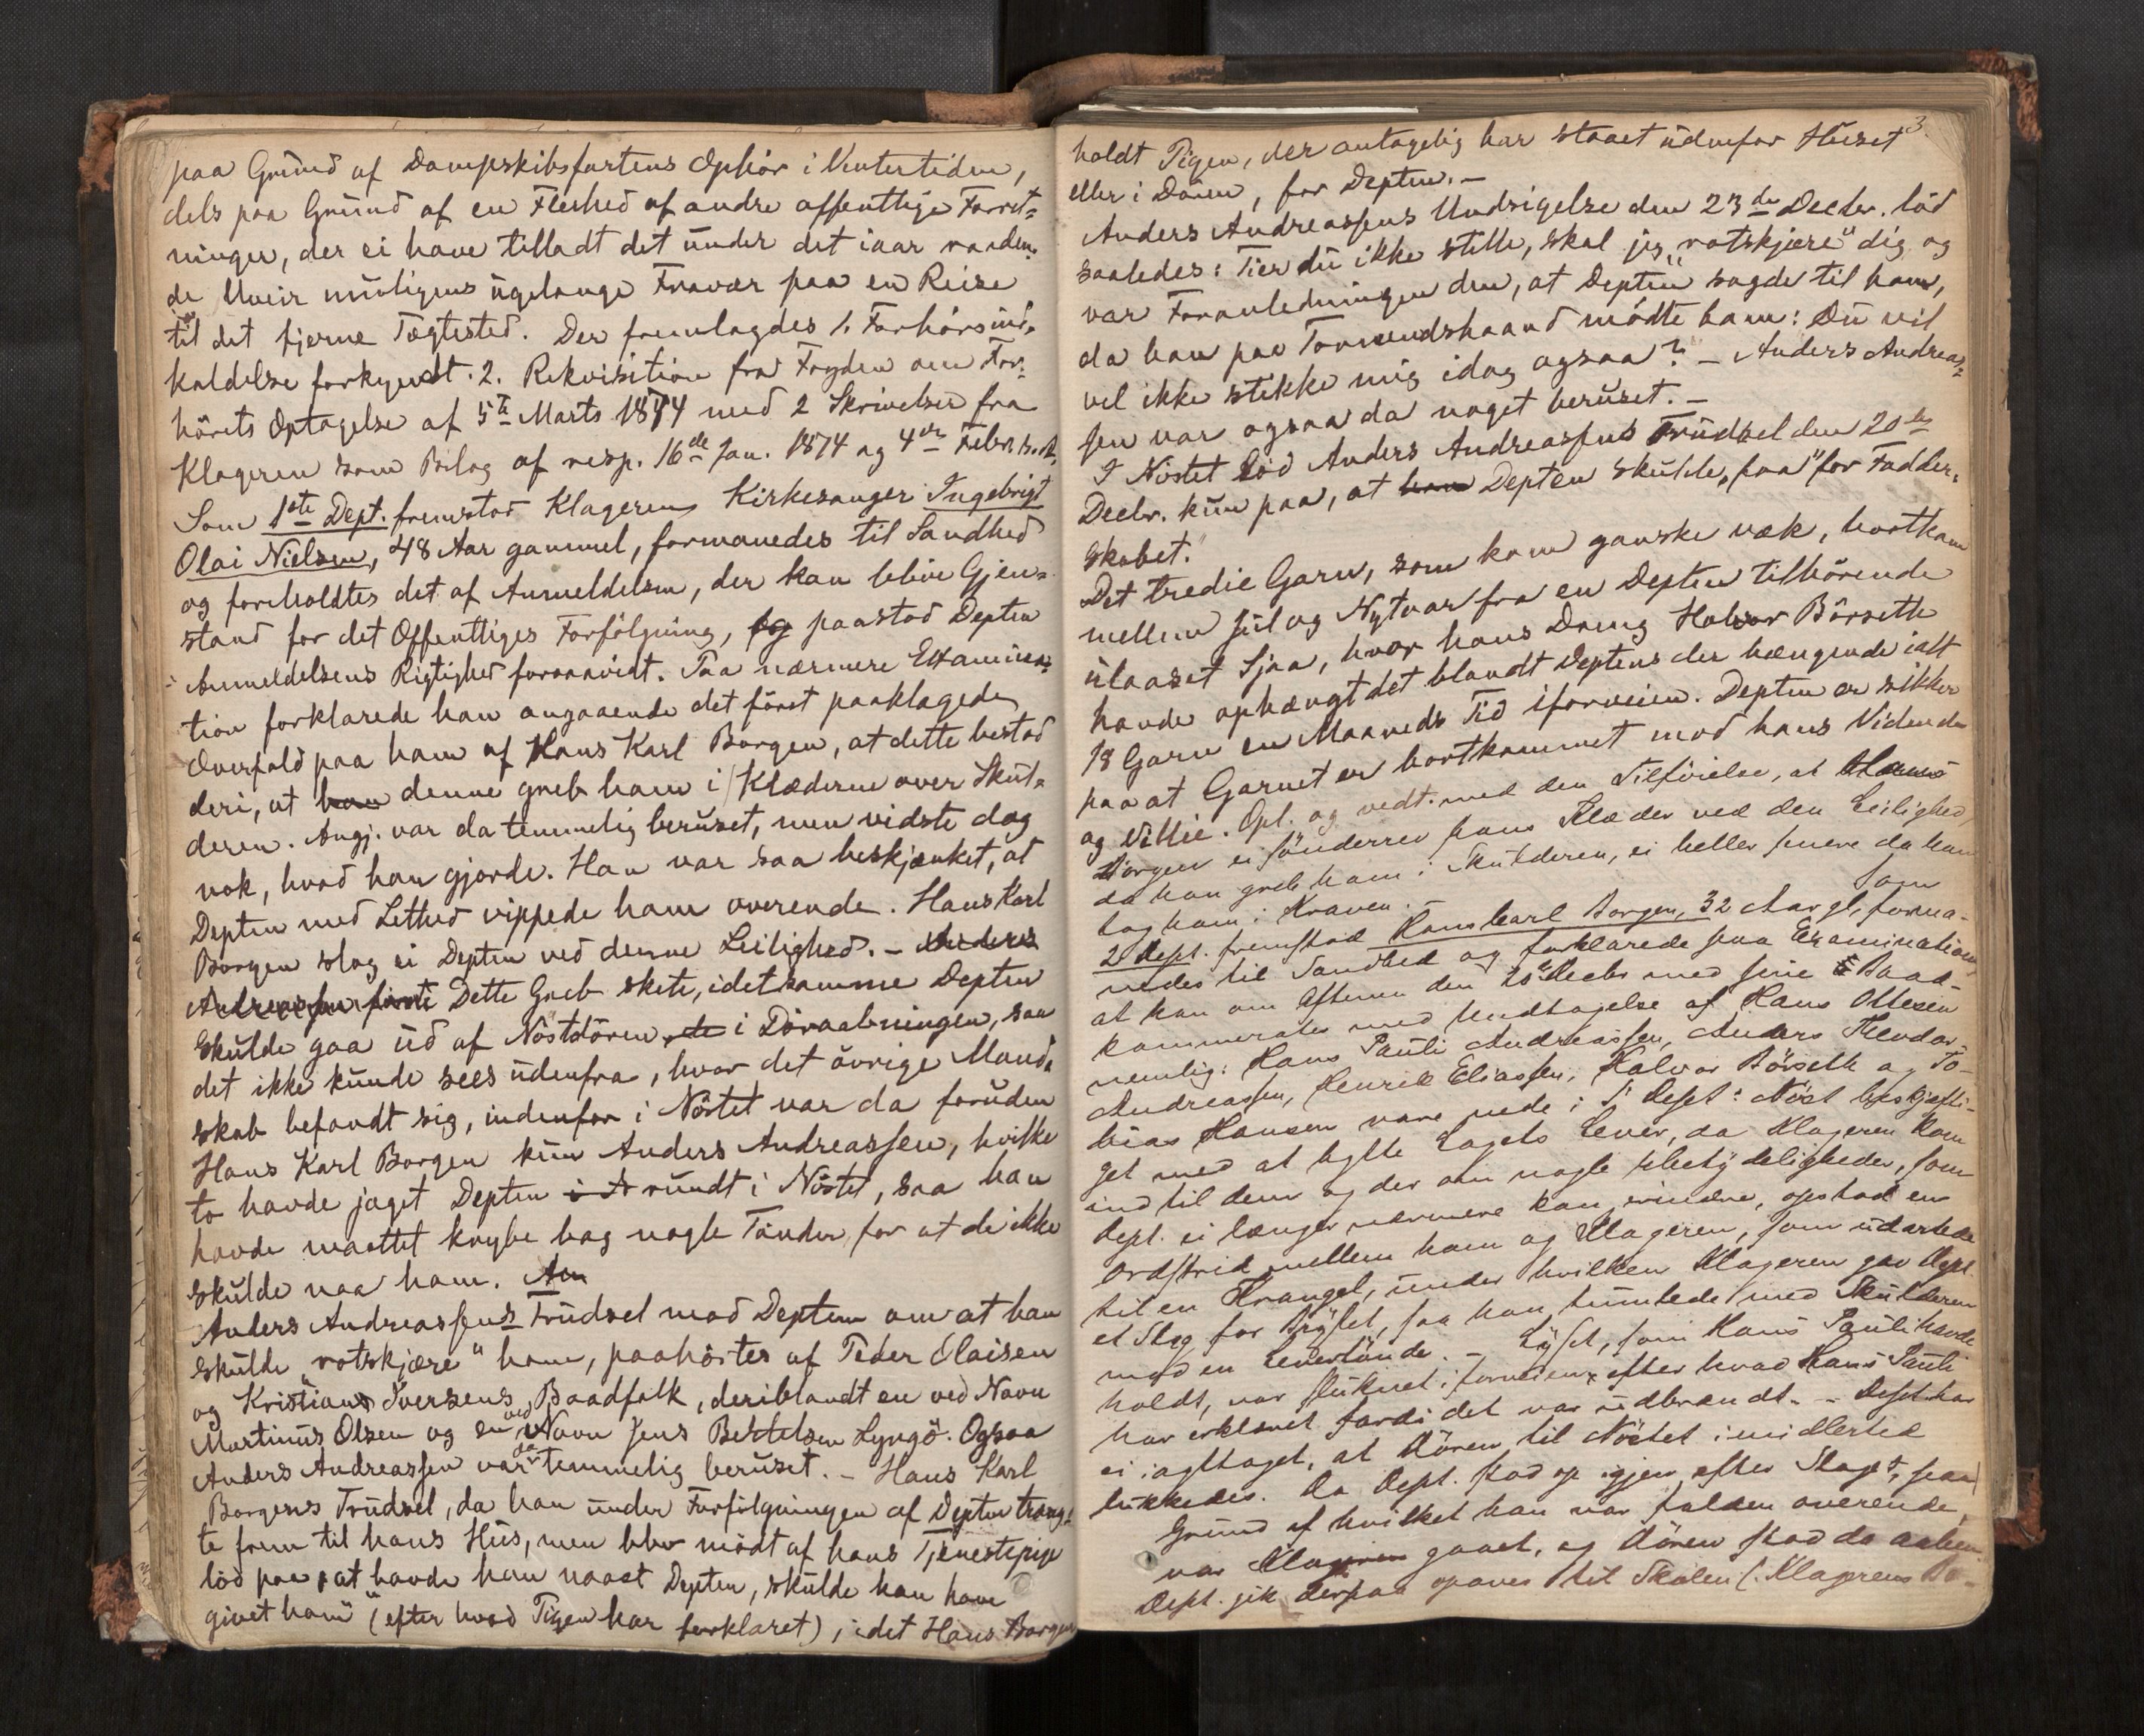 paa Grund af Dampskibsfartens Ophör i Vintertiden,
dels paa Grund af en Flerhed af andre offentlige Forret-
ninger, der ei have tilladt det under det iaar raaden-
de Uveir muligens ugelange Fravær paa en Reise
til det fjerne Tægtested. Der fremlagdes 1. Forhörsind-
kaldelse forkyndt. 2. Rekvisition fra Fogden om For-
hörets Optagelse af 5te Marts 1874 med 2 Skrivelser fra
Klageren som Bilag af resp. 16de Jan. 1874 og 4de Febr. s. A.
Som 1ste Dept. fremstod Klageren Kirkesanger Ingebrigt
Olai Nielsen, 48 Aar gammel, formanedes til Sandhed
og foreholdtes det af Anmeldelsen, der kan blive Gjen-
stand for det Offentliges Forfölgning, og paastod Depten
Anmeldelsens Rigtighed forsaavidt. Paa nærmere Examina-
tion forklarede han angaaende det först paaklagede
Overfald paa ham af Hans Karl Borgen, at dette bestod
deri, at han denne greb ham i Klæderne over Skul-
deren. Angj. var da temmelig beruset, men vidste dog
nok, hvad han gjorde. Han var saa beskjænket, at
Depten med Lethed vippede ham overende. Hans Karl
Borgen slog ei Depten ved denne Leilighed. - Anders
Andreassen Dette Greb skete, idet samme Depten
skulde gaa ud af Nöstdören, i Döraabningen, saa
det ikke kunde sees udenfra, hvor det övrige Mand-
skab befandt sig, indenfor i Nöstet var da foruden
Hans Karl Borgen kun Anders Andreassen, hvilke
to havde jaget Depten rundt i Nöstet, saa han
havde maattet krybe bag nogle Tönder, for at de ikke
skulde naa ham. An
Anders Andreassens Trudsel mod Depten om at han
skulde "ratskjære" ham, paahörtes af Peder Olaisen
og Kristian Iversens Baadfolk, deriblandt en ved Navn
Martinus Olsen og en ved Navn Jens Bertelsen Lyngö. Ogsaa
Anders Andreassen var da temmelig beruset. - Hans Karl
Borgens Trudsel, da han under Forfölgningen af Depten træng-
te frem til hans Hus, men blev mödt af hans Tjenestepige
löd paa, at havde han naaet Depten, skulde han have
"givet ham" (efter hvad Pigen har forklaret), idet Hans Borgen
3.
holdt Pigen, der antagelig har staaet udenfor Huset
eller i Dören, for Depten. -
Anders Andreassens Undsigelse den 23de Decbr. löd
saaledes: Tier du ikke stille, skal jeg "ratskjære" dig og
var Foranledningen den, at Depten sagde til ham,
da han paa Tommandshaand mödte ham: Du vil
vel ikke stikke mig idag ogsaa? - Anders Andreas-
sen var ogsaa da noget beruset. -
I Nöstet löd Anders Andreassens Trudsel den 20de
Decbr. kun paa, at han Depten skulde "faa" for Fadder-
skabet."
Det tredie Garn, som kom ganske væk, bortkom
mellem Jul og Nytaar fra en Depten tilhörende
ulaaset Sjaa, hvor hans Dreng Halvor Börseth
havde ophængt det blandt Deptens der hængende ialt
18 Garn en Maaneds Tid iforveien. Depten er sikker
paa at Garnet er bortkommet mod hans Vidende
og Villie. Opl. og vedt. med den Tilföielse, at Hans
Borgen ei sönderrev hans Klæder ved den Leilighed,
da han greb ham i Skulderen, ei heller senere da han
tog ham i Kraven. - Som
2 Dept. fremstod Hans Carl Borgen, 32 Aar gl., forma-
nedes til Sandhed og forklarede paa Examination,
at han om Aftenen den 20de Decbr med sine Baad-
kammerater med Undtagelse af Hans Ottesen
nemlig: Hans Pauli Andreassen, Anders Theodor
Andreassen, Henrik Eliassen, Halvor Börseth og To-
bias Hansen vare nede i 1' Dept's Nöst beskjæfti-
get med at bytte Lagets Lever, da Klageren kom
ind til dem og der om nogle Ubetydeligheder, som
Dept. ei længer nærmere kan erindre, opstod en
Ordstrid mellem ham og Klageren, som udartede
til en Krangel, under hvilken Klageren gav Dept.
et Slag for Brystet, saa han tumlede med Skulderen
mod en Levertönde. - Lyset, som Hans Pauli havde
holdt, var slukket iforveien, efter hvad Hans Pauli
har erklæret fordi det var udbrændt. - Dept. har
ei iagttaget, at Dören til Nöstet imidlertid
lukkedes. Da Dept. stod op igjen efter Slaget, paa
Grund af hvilket han var falden overende,
var Klageren gaaet, og Dören stod da aaben.
Dept. gik derpaa opover til Skolen (Klagerens Bo-